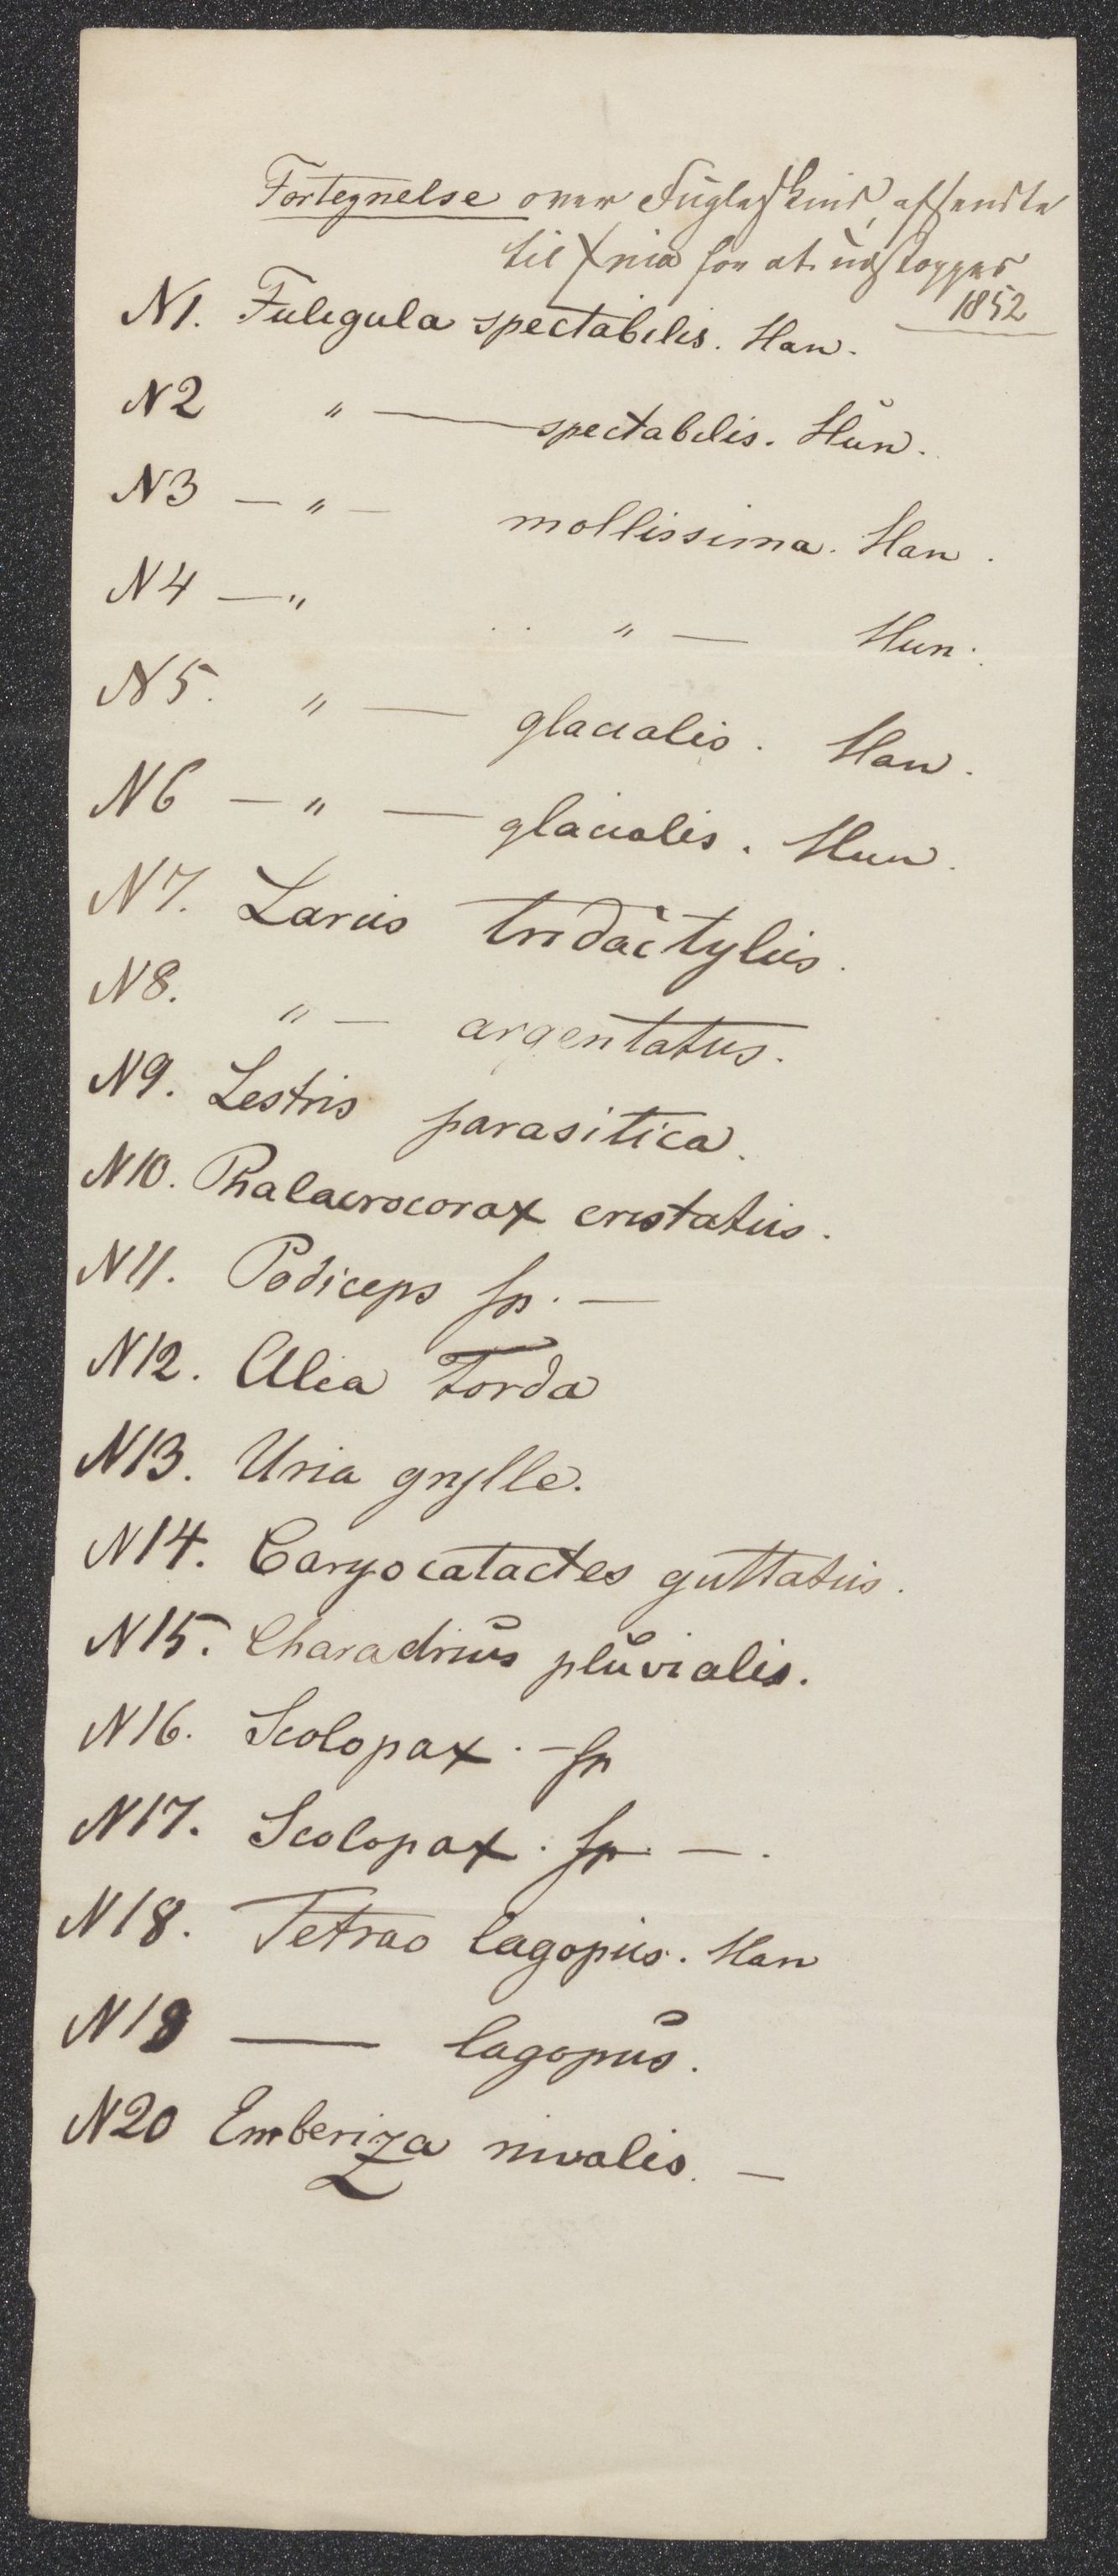 Fortegnelse over Fugleskind, afsendte
til Xnia for at udstoppes
1852
N1. Fuligula spectabilis. Han.
N2 " — spectabilis. Hun.
N3 — " — mollissima. Han.
N4 — " " — Hun.
N5. " — glacialis. Han.
N6 — " — glacialis. Hun.
N7. Larus tridactylus.
N8. " — argentatus.
N9. Lestris parasitica.
N10. Phalacrocorax cristatus.
N11. Podiceps sp. —
N12. Alca Torda
N13. Uria grylle.
N14. Caryocatactes guttatus.
N15. Charadrius pluvialis.
N16. Scolopax. — sp
N17. Scolopax. sp. —.
N18. Tetrao lagopus. Han
N19 — lagopus.
N20 Emberiza nivalis. —